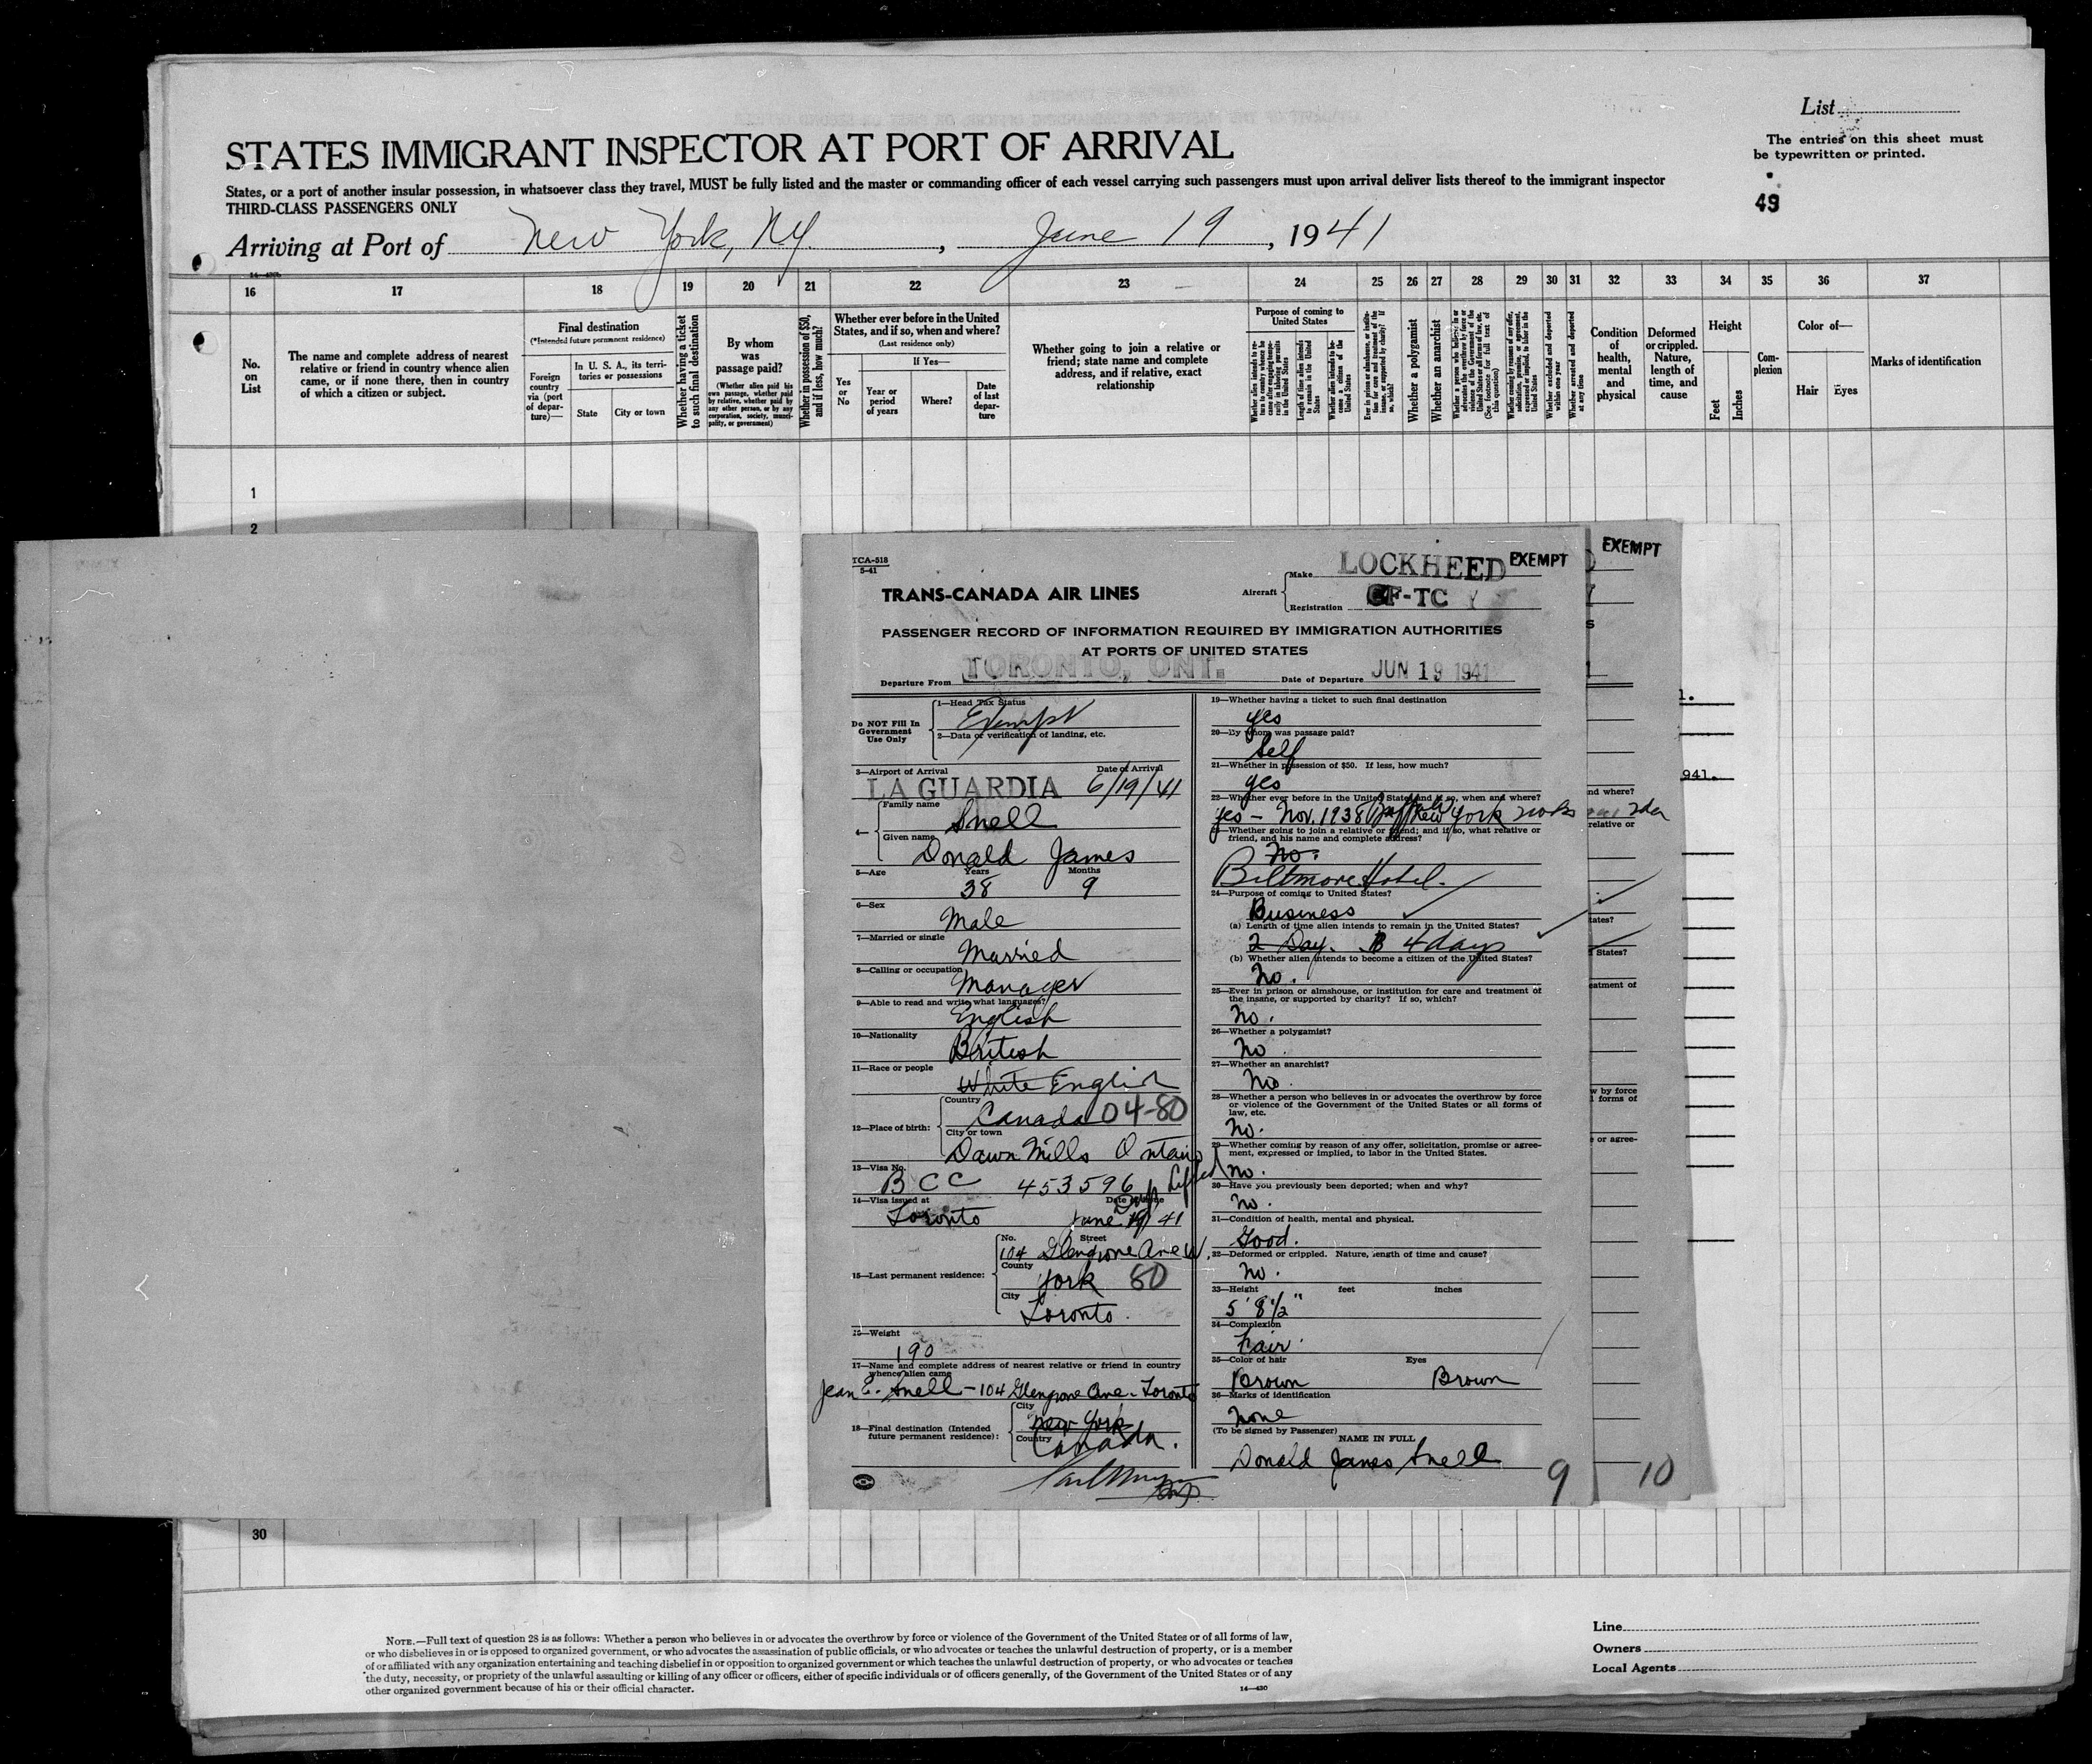 List
The entries on this sheet must
be typewritten or printed.
49
STATES IMMIGRANT INSPECTOR AT PORT OF ARRIVAL
States, or a port of another insular possession, in whatsoever class they travel, MUST be fully listed and the master or commanding officer of each vessel carrying such passengers must upon arrival deliver lists thereof to the immigrant inspector
THIRD-CLASS PASSENGERS ONLY
Arriving at Port of New York, NY. , June 19 , 1941
16 17 18 19 20 21 22 23 24 25 26 27 28 29 30 31 32 33 34 35 36 37
No.
on
List
The name and complete address of nearest
relative or friend in country whence alien
came, or if none there, then in country
of which a citizen or subject.
Final destination
(*Intended future permanent residence)
Foreign
country
via (port
of depar-
ture)—
In U. S. A., its terri-
tories or possessions
State
City or town
Whether having a ticket
to such final destination
By whom
was
passage paid?
(Whether alien paid his
own passage, whether paid
by relative, whether paid by
any other person, or by any
corporation, society, munici-
pality, or government)
Whether in possession of $50,
and if less, how much?
Whether ever before in the United
States, and if so, when and where?
(Last residence only)
Yes
or
No
If Yes—
Year or
period
of years
Where?
Date
of last
depar-
ture
Whether going to join a relative or
friend; state name and complete
address, and if relative, exact
relationship
Purpose of coming to
United States
Length of time alien intends
to remain in the United
States
Whether alien intends to be-
come a citizen of the
United States
Whether a polygamist
Whether an anarchist
Whether excluded and deported
within one year
Whether arrested and deported
at any time
Condition
of
health,
mental
and
physical
Deformed
or crippled.
Nature,
length of
time, and
cause
Height
Feet
Inches
Com-
plexion
Color of—
Hair
Eyes
Marks of identification
1
2
TCA-518
5-41
TRANS-CANADA AIR LINES
Aircraft
Make LOCKHEED
EXEMPT
Registration CF-TC
PASSENGER RECORD OF INFORMATION REQUIRED BY IMMIGRATION AUTHORITIES
AT PORTS OF UNITED STATES
Departure From TORONTO, ONT. Date of Departure JUN 19 1941
Do NOT Fill In
Government
Use Only
1—Head Tax Status
Exempt
2—Data or verification of landing, etc.
3—Airport of Arrival Date of Arrival
LA GUARDIA 6/19/41
4—
Family name
Snell
Given name
Donald James
5—Age Years Months
38 9
6—Sex
Male
7—Married or single
Married
8—Calling or occupation
Manager
9—Able to read and write what languages?
English
10—Nationality
British
11—Race or people
White English
12—Place of birth:
Country
Canada 04-80
City or town
Dawn Mills Ontario
13—Visa No.
BCC 453596
14—Visa issued at
Toronto June 19/41
15—Last permanent residence:
No. Street
104 Glengrove Ave W.
County
York 80
City
Toronto.
16—Weight
190
17—Name and complete address of nearest relative or friend in country
whence alien came
Jean E. Snell - 104 Glengrove Ave. Toronto
18—Final destination (Intended
future permanent residence):
City
New York
Country
Canada.
19—Whether having a ticket to such final destination
yes
20—By whom was passage paid?
Self
21—Whether in possession of $50. If less, how much?
yes
22—Whether ever before in the United States and if so, when and where?
yes - Nov. 1938 Buffalo New York
23—Whether going to join a relative or friend; and if so, what relative or
friend, and his name and complete address?
No.
Biltmore Hotel.
24—Purpose of coming to United States?
Business
(a) Length of time alien intends to remain in the United States?
2 Day. 4 days
(b) Whether alien intends to become a citizen of the United States?
No.
25—Ever in prison or almshouse, or institution for care and treatment of
the insane, or supported by charity? If so, which?
No.
26—Whether a polygamist?
No
27—Whether an anarchist?
No.
28—Whether a person who believes in or advocates the overthrow by force
or violence of the Government of the United States or all forms of
law, etc.
No.
29—Whether coming by reason of any offer, solicitation, promise or agree-
ment, expressed or implied, to labor in the United States.
No.
30—Have you previously been deported; when and why?
No.
31—Condition of health, mental and physical.
Good.
32—Deformed or crippled. Nature, length of time and cause?
No.
33—Height feet inches
5' 8½"
34—Complexion
Fair.
35—Color of hair Eyes
Brown Brown
36—Marks of identification
None
(To be signed by Passenger)
NAME IN FULL
Donald James Snell
9
EXEMPT
S
1.
941.
nd where?
relative or
tates?
States?
eatment of
w by force
forms of
e or agree-
10
30
NOTE.—Full text of question 28 is as follows: Whether a person who believes in or advocates the overthrow by force or violence of the Government of the United States or of all forms of law,
or who disbelieves in or is opposed to organized government, or who advocates the assassination of public officials, or who advocates or teaches the unlawful destruction of property, or is a member
of or affiliated with any organization entertaining and teaching disbelief in or opposition to organized government or which teaches the unlawful destruction of property, or who advocates or teaches
the duty, necessity, or propriety of the unlawful assaulting or killing of any officer or officers, either of specific individuals or of officers generally, of the Government of the United States or of any
other organized government because of his or their official character.
14—430
Line
Owners
Local Agents